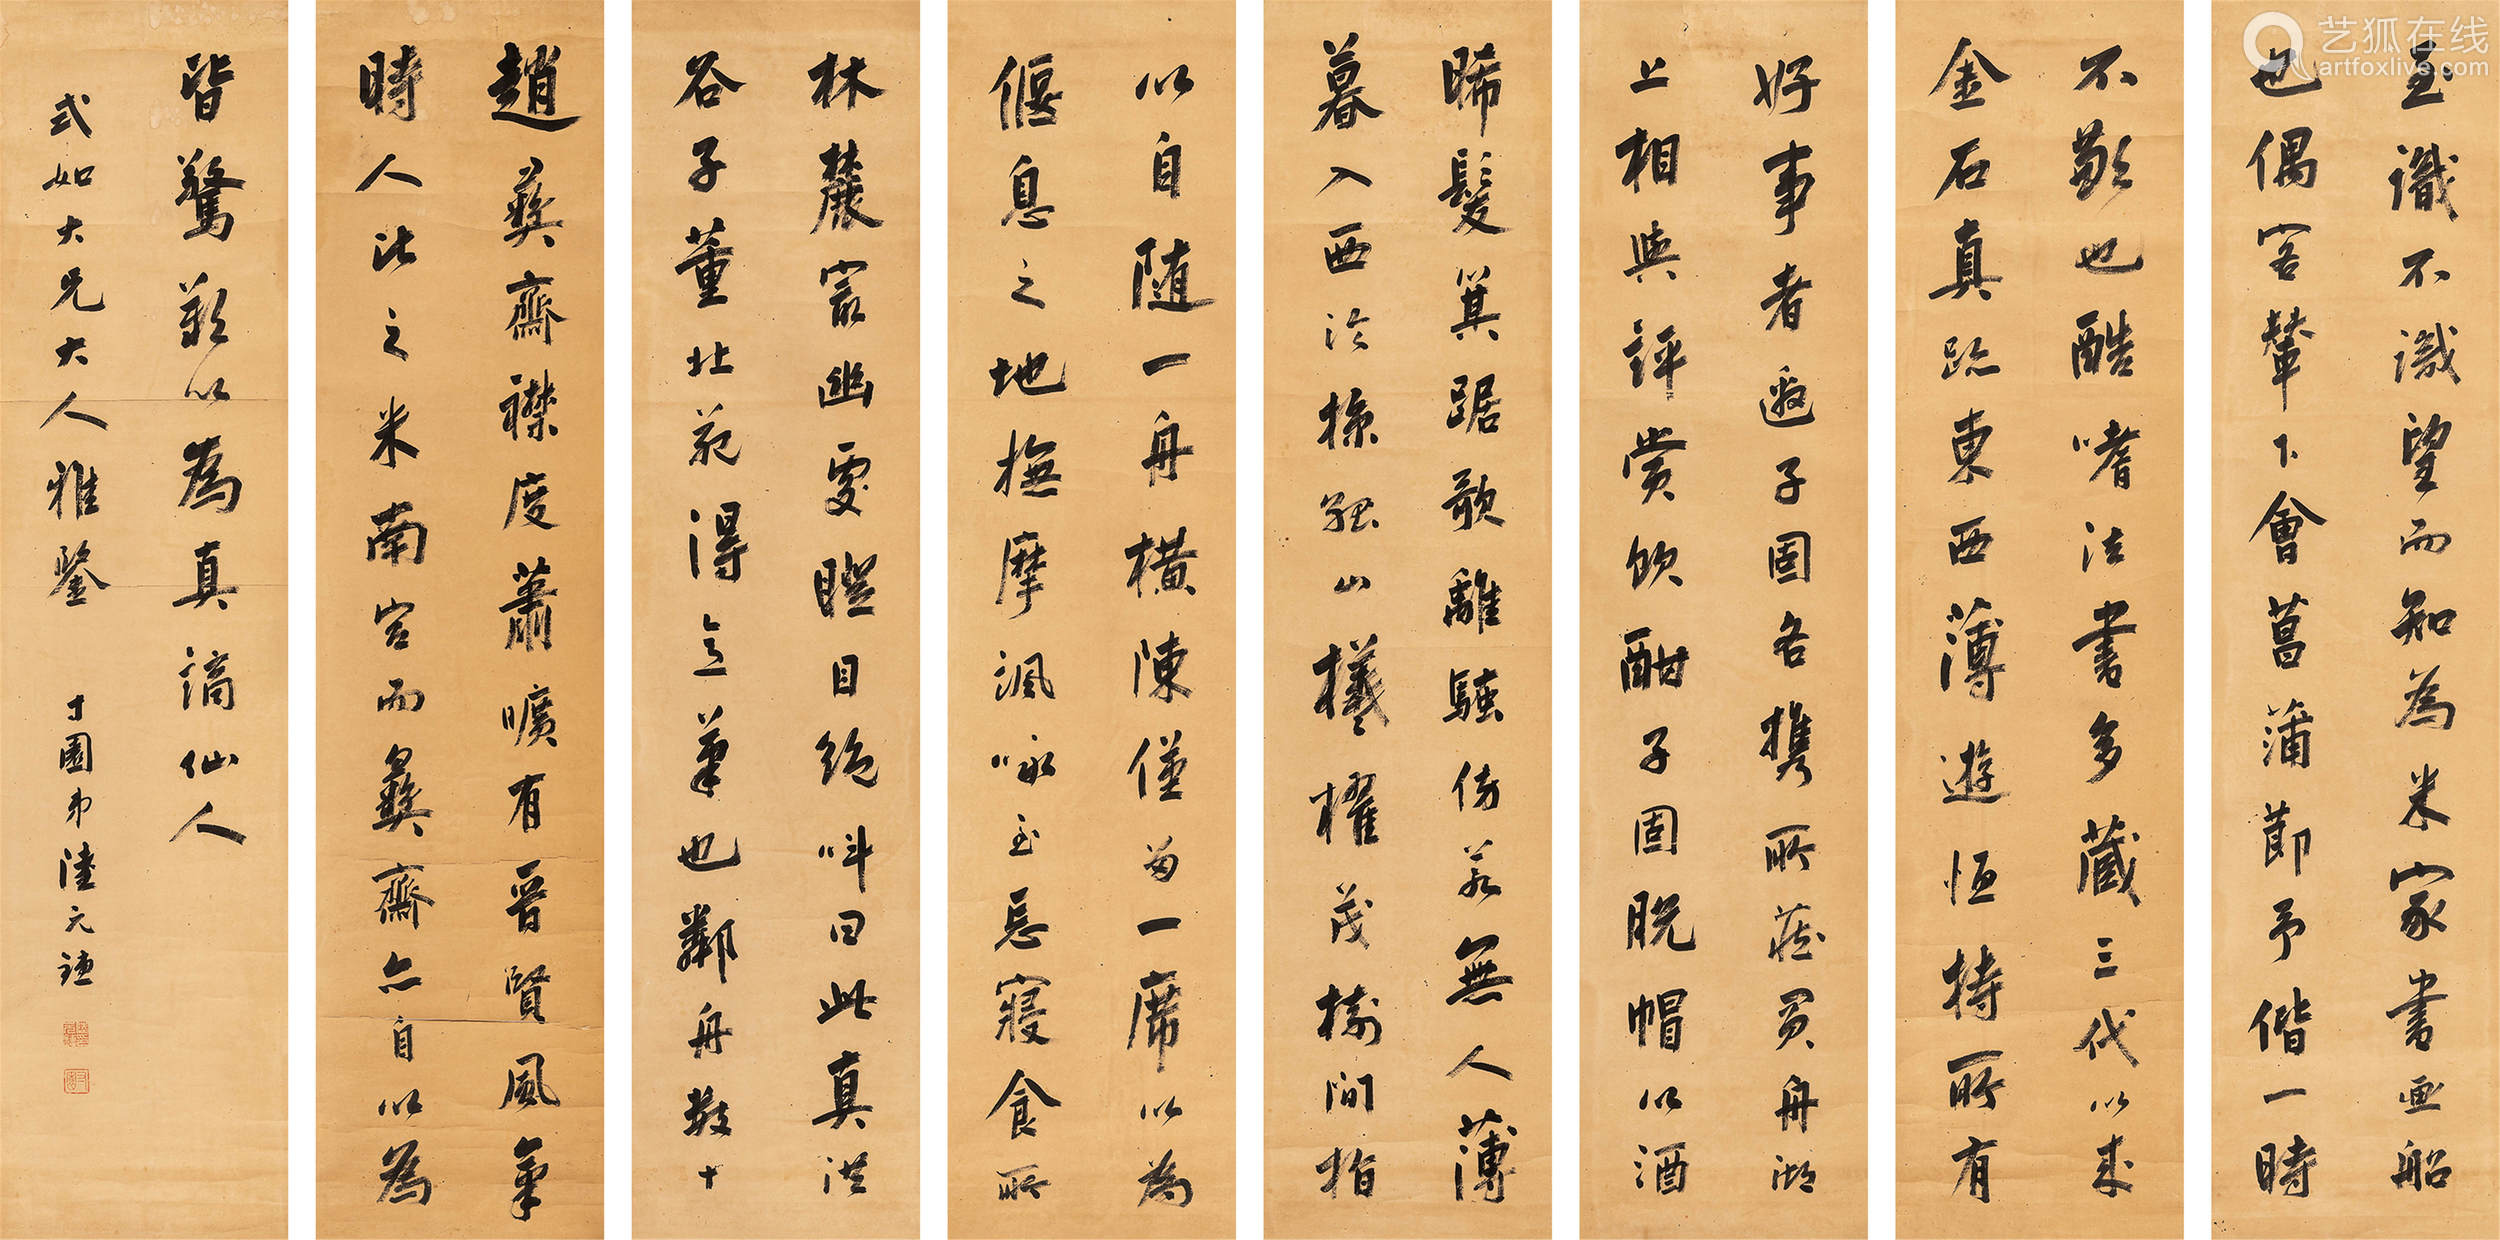 趙彝齋襟度蕭曠有晉賢風氣
時人比之米南宮而彝齋亦自以為
不歉也酷嗜法書多藏三代以來
金石真跡東西薄遊恒持所有
以自隨一舟橫陳僅留一席以為
偃息之地撫摩諷咏至忘寢食所
至識不識望而知為米家書画船
也偶客輦下會菖蒲節予偕一時
好事者邀子固各攜所藏買舟湖
上相與評賞飲酣子固脫帽以酒
晞髮箕踞歌離騷傍若無人薄
暮入西泠掠孤山檥櫂茂樹間指
林麓最幽處瞪目絕呌曰此真洪
谷子董北苑得意筆也鄰舟數十
皆驚歎以為真謫仙人
式如大兄大人雅鑒 寸園弟陸元
艺狐在线
artfoxlive.com